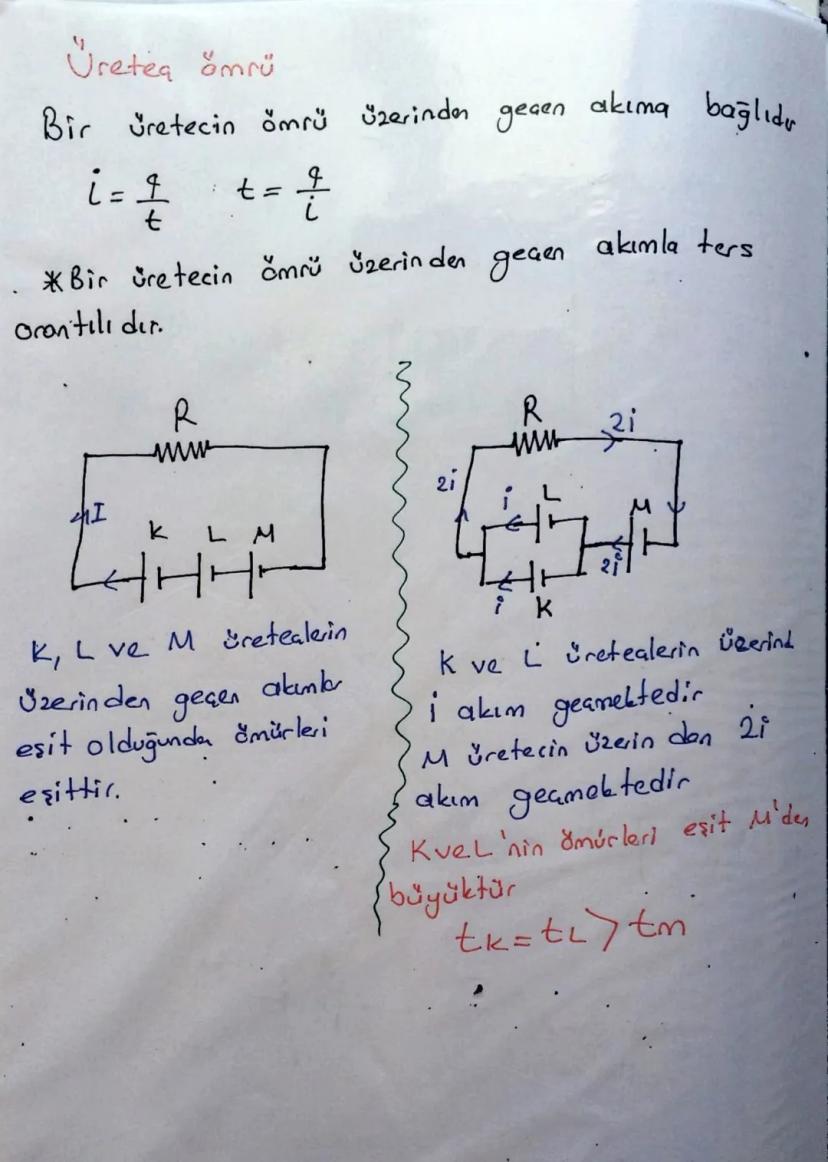 Üreteç ömrü
Bir üretecin ömrü üzerinden geçen akıma bağlıdır
i = q/t    t = q/i
* Bir üretecin ömrü üzerinden geçen akımla ters
orantılıdır.
R
I
K L M
K, L ve M üreteçlerin
üzerinden geçen akımlar
eşit olduğundan ömürleri
eşittir.
R
2i
2i
i L
M
2i
i K
K ve L üreteçlerin üzerind
i akım geçmektedir
M üretecin üzerinden 2i
akım geçmektedir
K ve L'nin ömürleri eşit M'den
büyüktür
tK = tL > tM